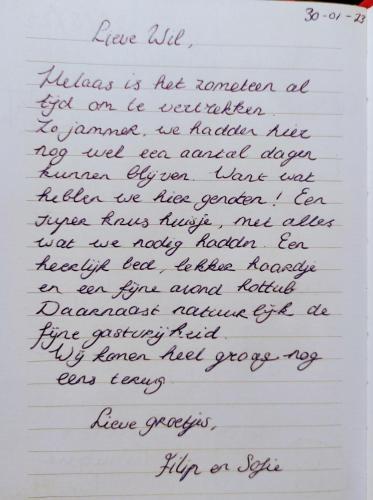 30-01-23
Lieve Wil,
Helaas is het zometeen al
tijd om te vertrekken.
Zo jammer, we hadden hier
nog wel een aantal dagen
kunnen blijven. Want wat
hebben we hier genoten! Een
super knus huisje, met alles
wat we nodig hadden. Een
heerlijk bed, lekker haardje
en een fijne avond hottub
Daarnaast natuurlijk de
fijne gastvrijheid.
Wij komen heel graag nog
eens terug.
Lieve groetjes,
Filip en Sofie